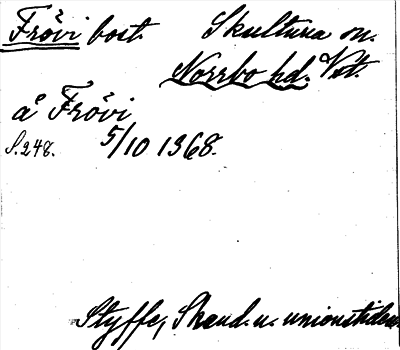 Frövi bost. Skultuna sn.
Norrbo hd. Vst.
å Frövi
S. 248. 5/10 1368.
Styffe, Skand. u. unionstiden